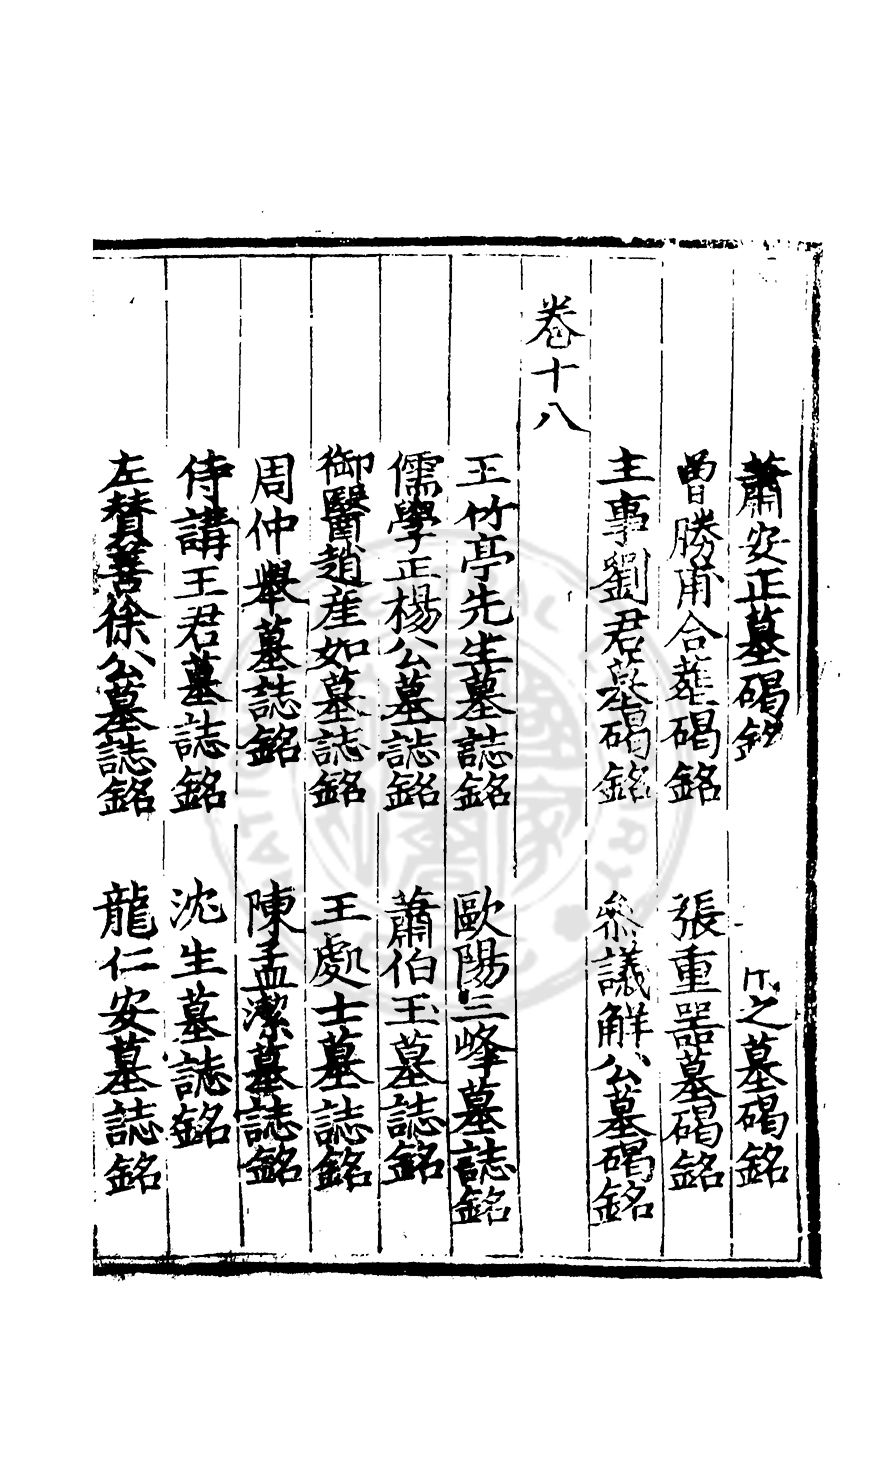 蕭安正墓碣銘　之墓碣銘
曾勝甫合葬碣銘　張重器墓碣銘
主事劉君墓碣銘　叅議解公墓碣銘
卷十八
王竹亭先生墓誌銘　歐陽三峰墓誌銘
儒學正楊公墓誌銘　蕭伯玉墓誌銘
御醫趙彦如墓誌銘　王處士墓誌銘
周仲舉墓誌銘　陳孟潔墓誌銘
侍講王君墓誌銘　沈生墓誌銘
左賛善徐公墓誌銘　龍仁安墓誌銘